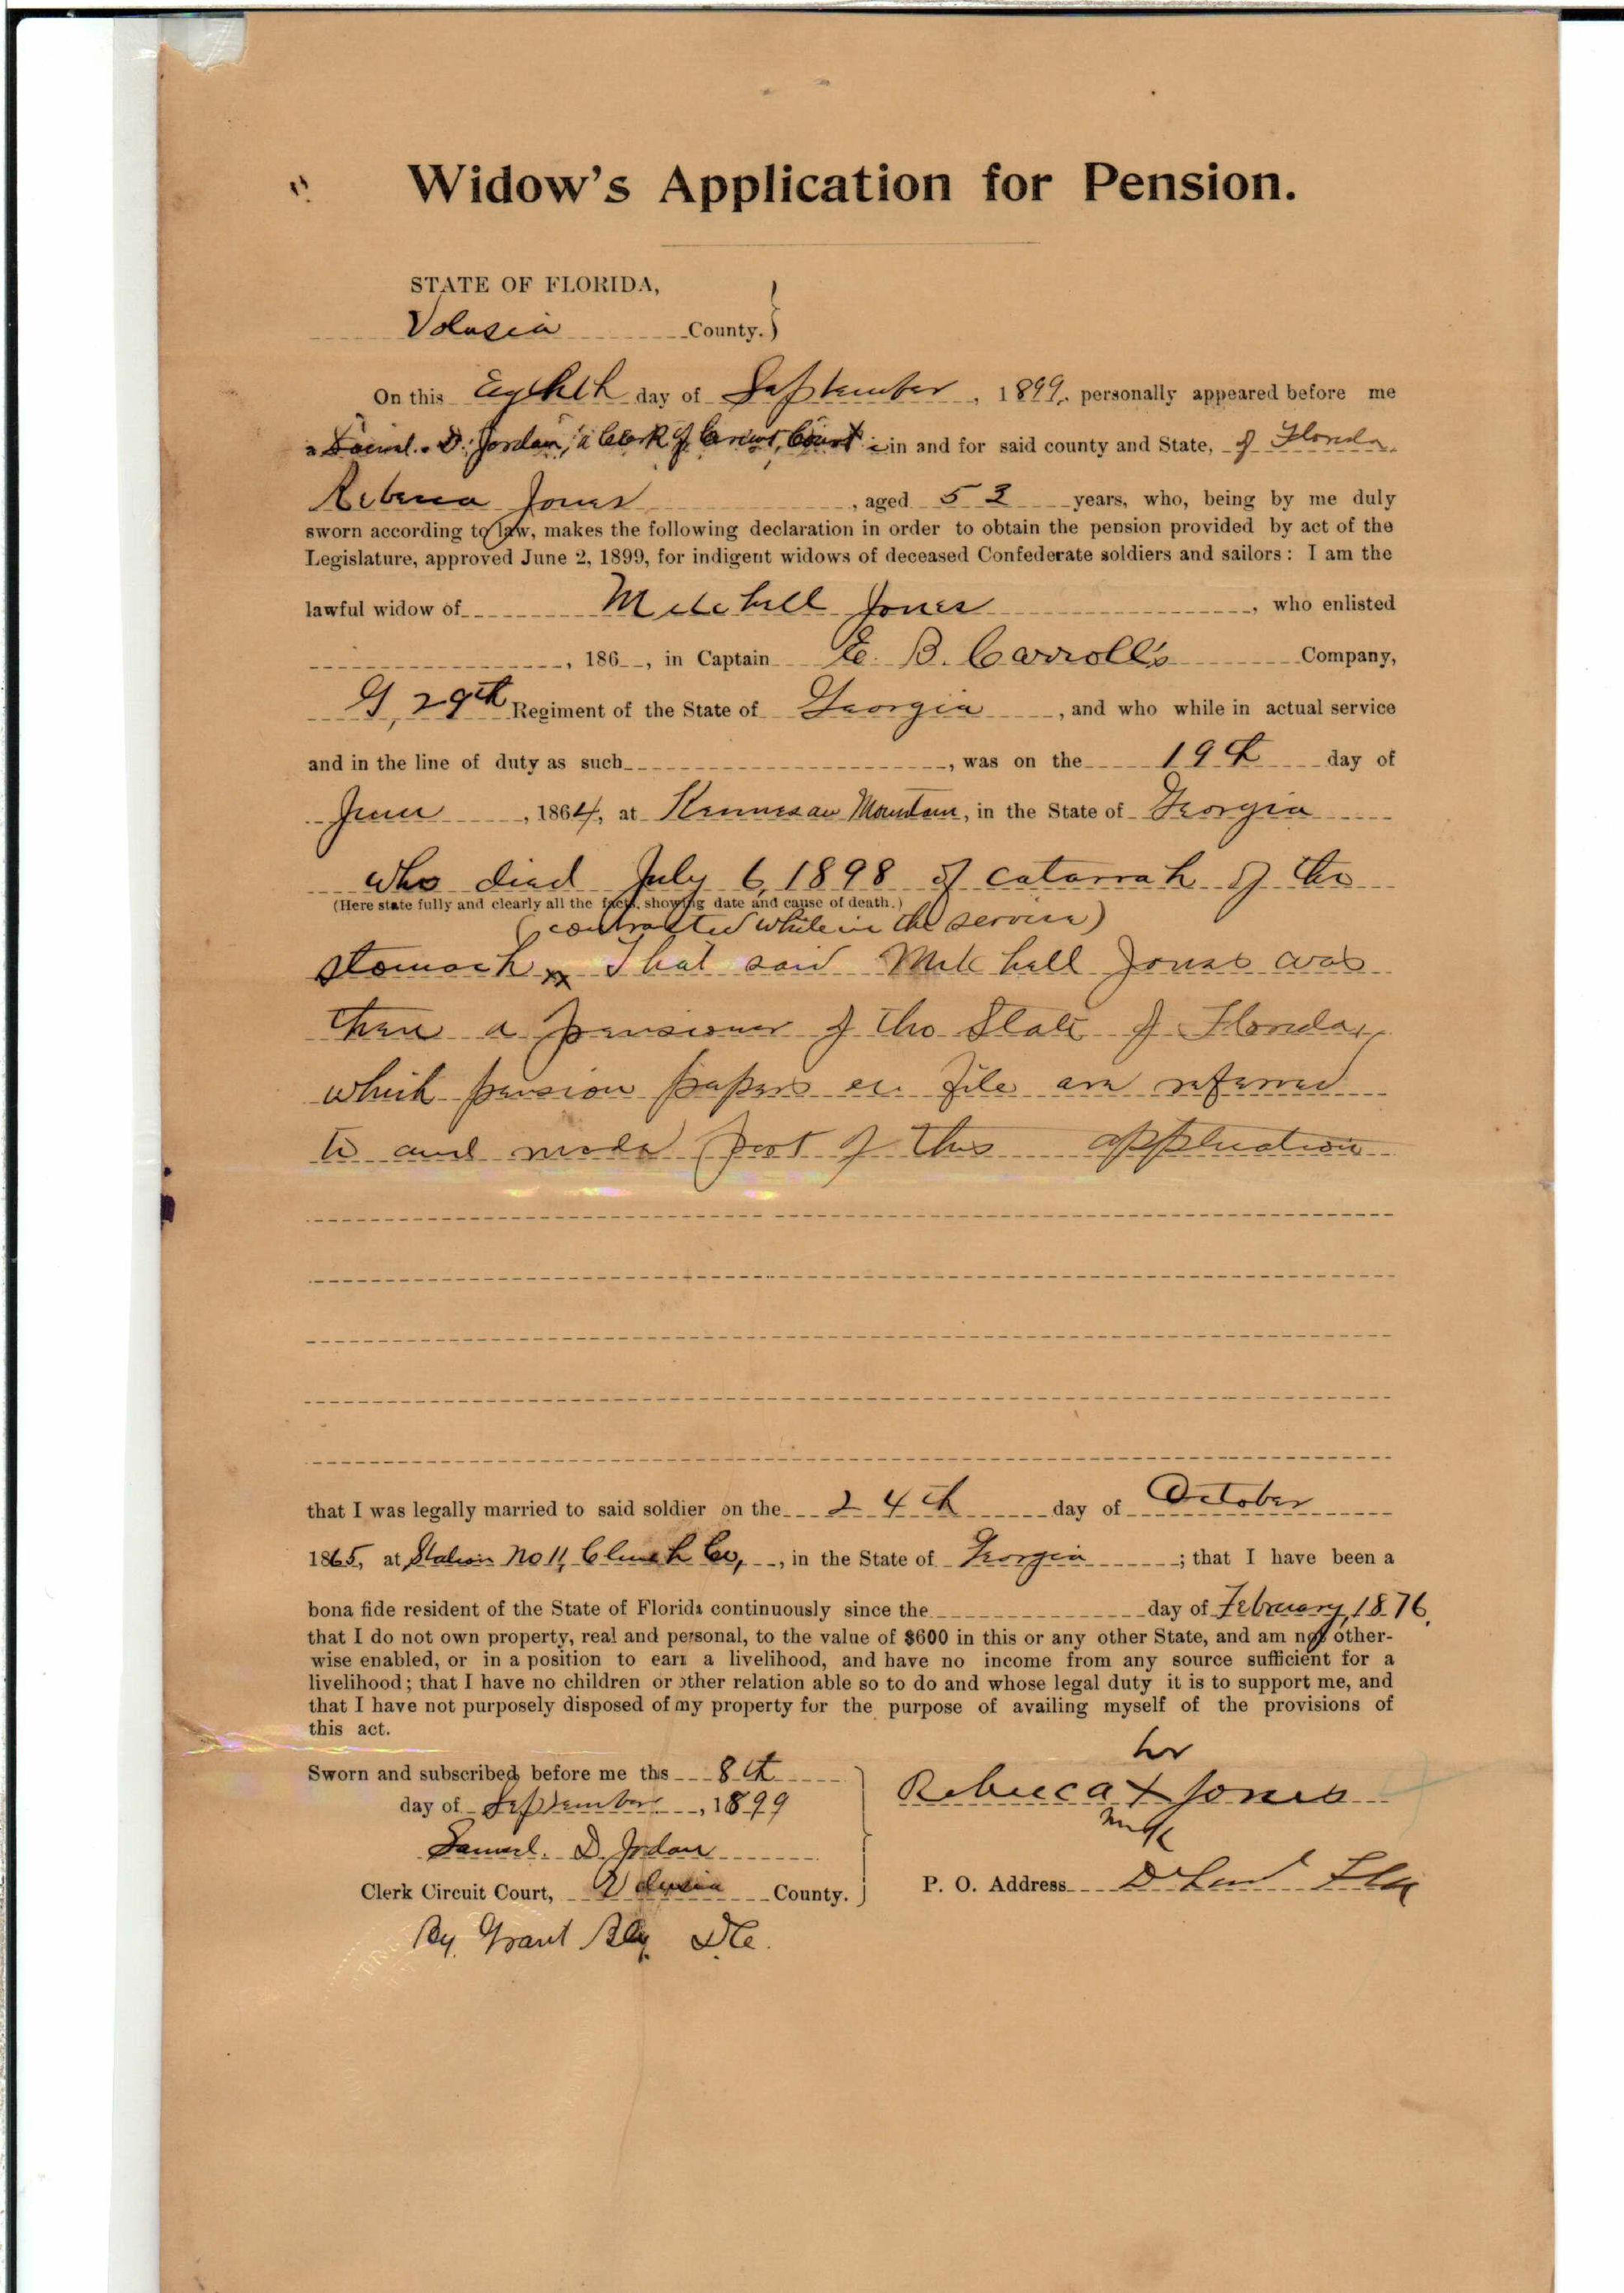 Widow's Application for Pension.
STATE OF FLORIDA,
Volusia County. }
On this Eighth day of September, 1899, personally appeared before me
a Samuel. D. Jordan, a Clerk of Circuit Court in and for said county and State, of Florida
Rebecca Jones, aged 53 years, who, being by me duly
sworn according to law, makes the following declaration in order to obtain the pension provided by act of the
Legislature, approved June 2, 1899, for indigent widows of deceased Confederate soldiers and sailors: I am the
lawful widow of Mitchell Jones, who enlisted
, 186 , in Captain E. B. Carroll's Company,
G, 29th Regiment of the State of Georgia, and who while in actual service
and in the line of duty as such , was on the 19th day of
June, 1864, at Kennesaw Mountain, in the State of Georgia
who died July 6, 1898 of catarrah of the
(Here state fully and clearly all the facts, showing date and cause of death.)
(contracted while in the service)
stomach xx That said Mitchell Jones was
then a pensioner of the State of Florida,
which pension papers on file are referred
to and made part of this application
that I was legally married to said soldier on the 24th day of October
1865, at Station No 11, Clinch Co, in the State of Georgia; that I have been a
bona fide resident of the State of Florida continuously since the day of February, 1876,
that I do not own property, real and personal, to the value of $600 in this or any other State, and am not other-
wise enabled, or in a position to earn a livelihood, and have no income from any source sufficient for a
livelihood; that I have no children or other relation able so to do and whose legal duty it is to support me, and
that I have not purposely disposed of my property for the purpose of availing myself of the provisions of
this act.
Sworn and subscribed before me this 8th
day of September, 1899
Samuel. D. Jordan
Clerk Circuit Court, Volusia County.
By Grant Bly D.C.
her
Rebecca X Jones
mark
P. O. Address DeLand Fla